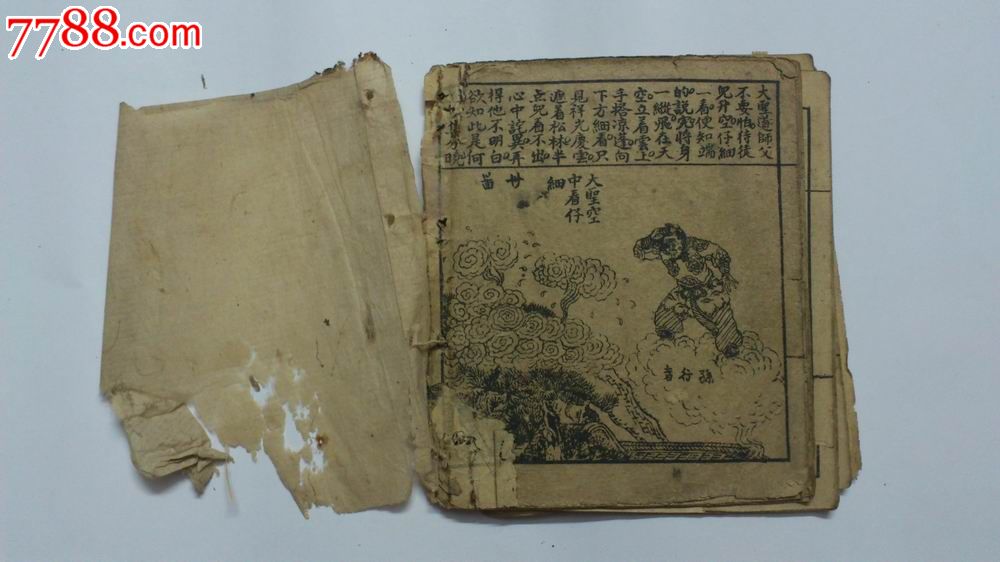 7788.com
中国收藏热线
大聖道師父
不要怕待徒
兒升空仔細
一看便知端
的說完將身
一縱飛在天
空立看雲上
手搭涼蓬向
下方細看只
見祥光慶雲
遮着松林半
点兒看不出
心中詫異弄
得他不明白
欲知此是何
分曉
大聖空
中看仔
細
孫行者